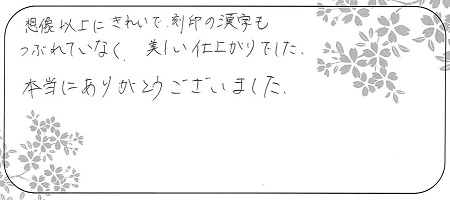 想像以上にきれいで、刻印の漢字も
つぶれていなく、美しい仕上がりでした。
本当にありがとうございました。